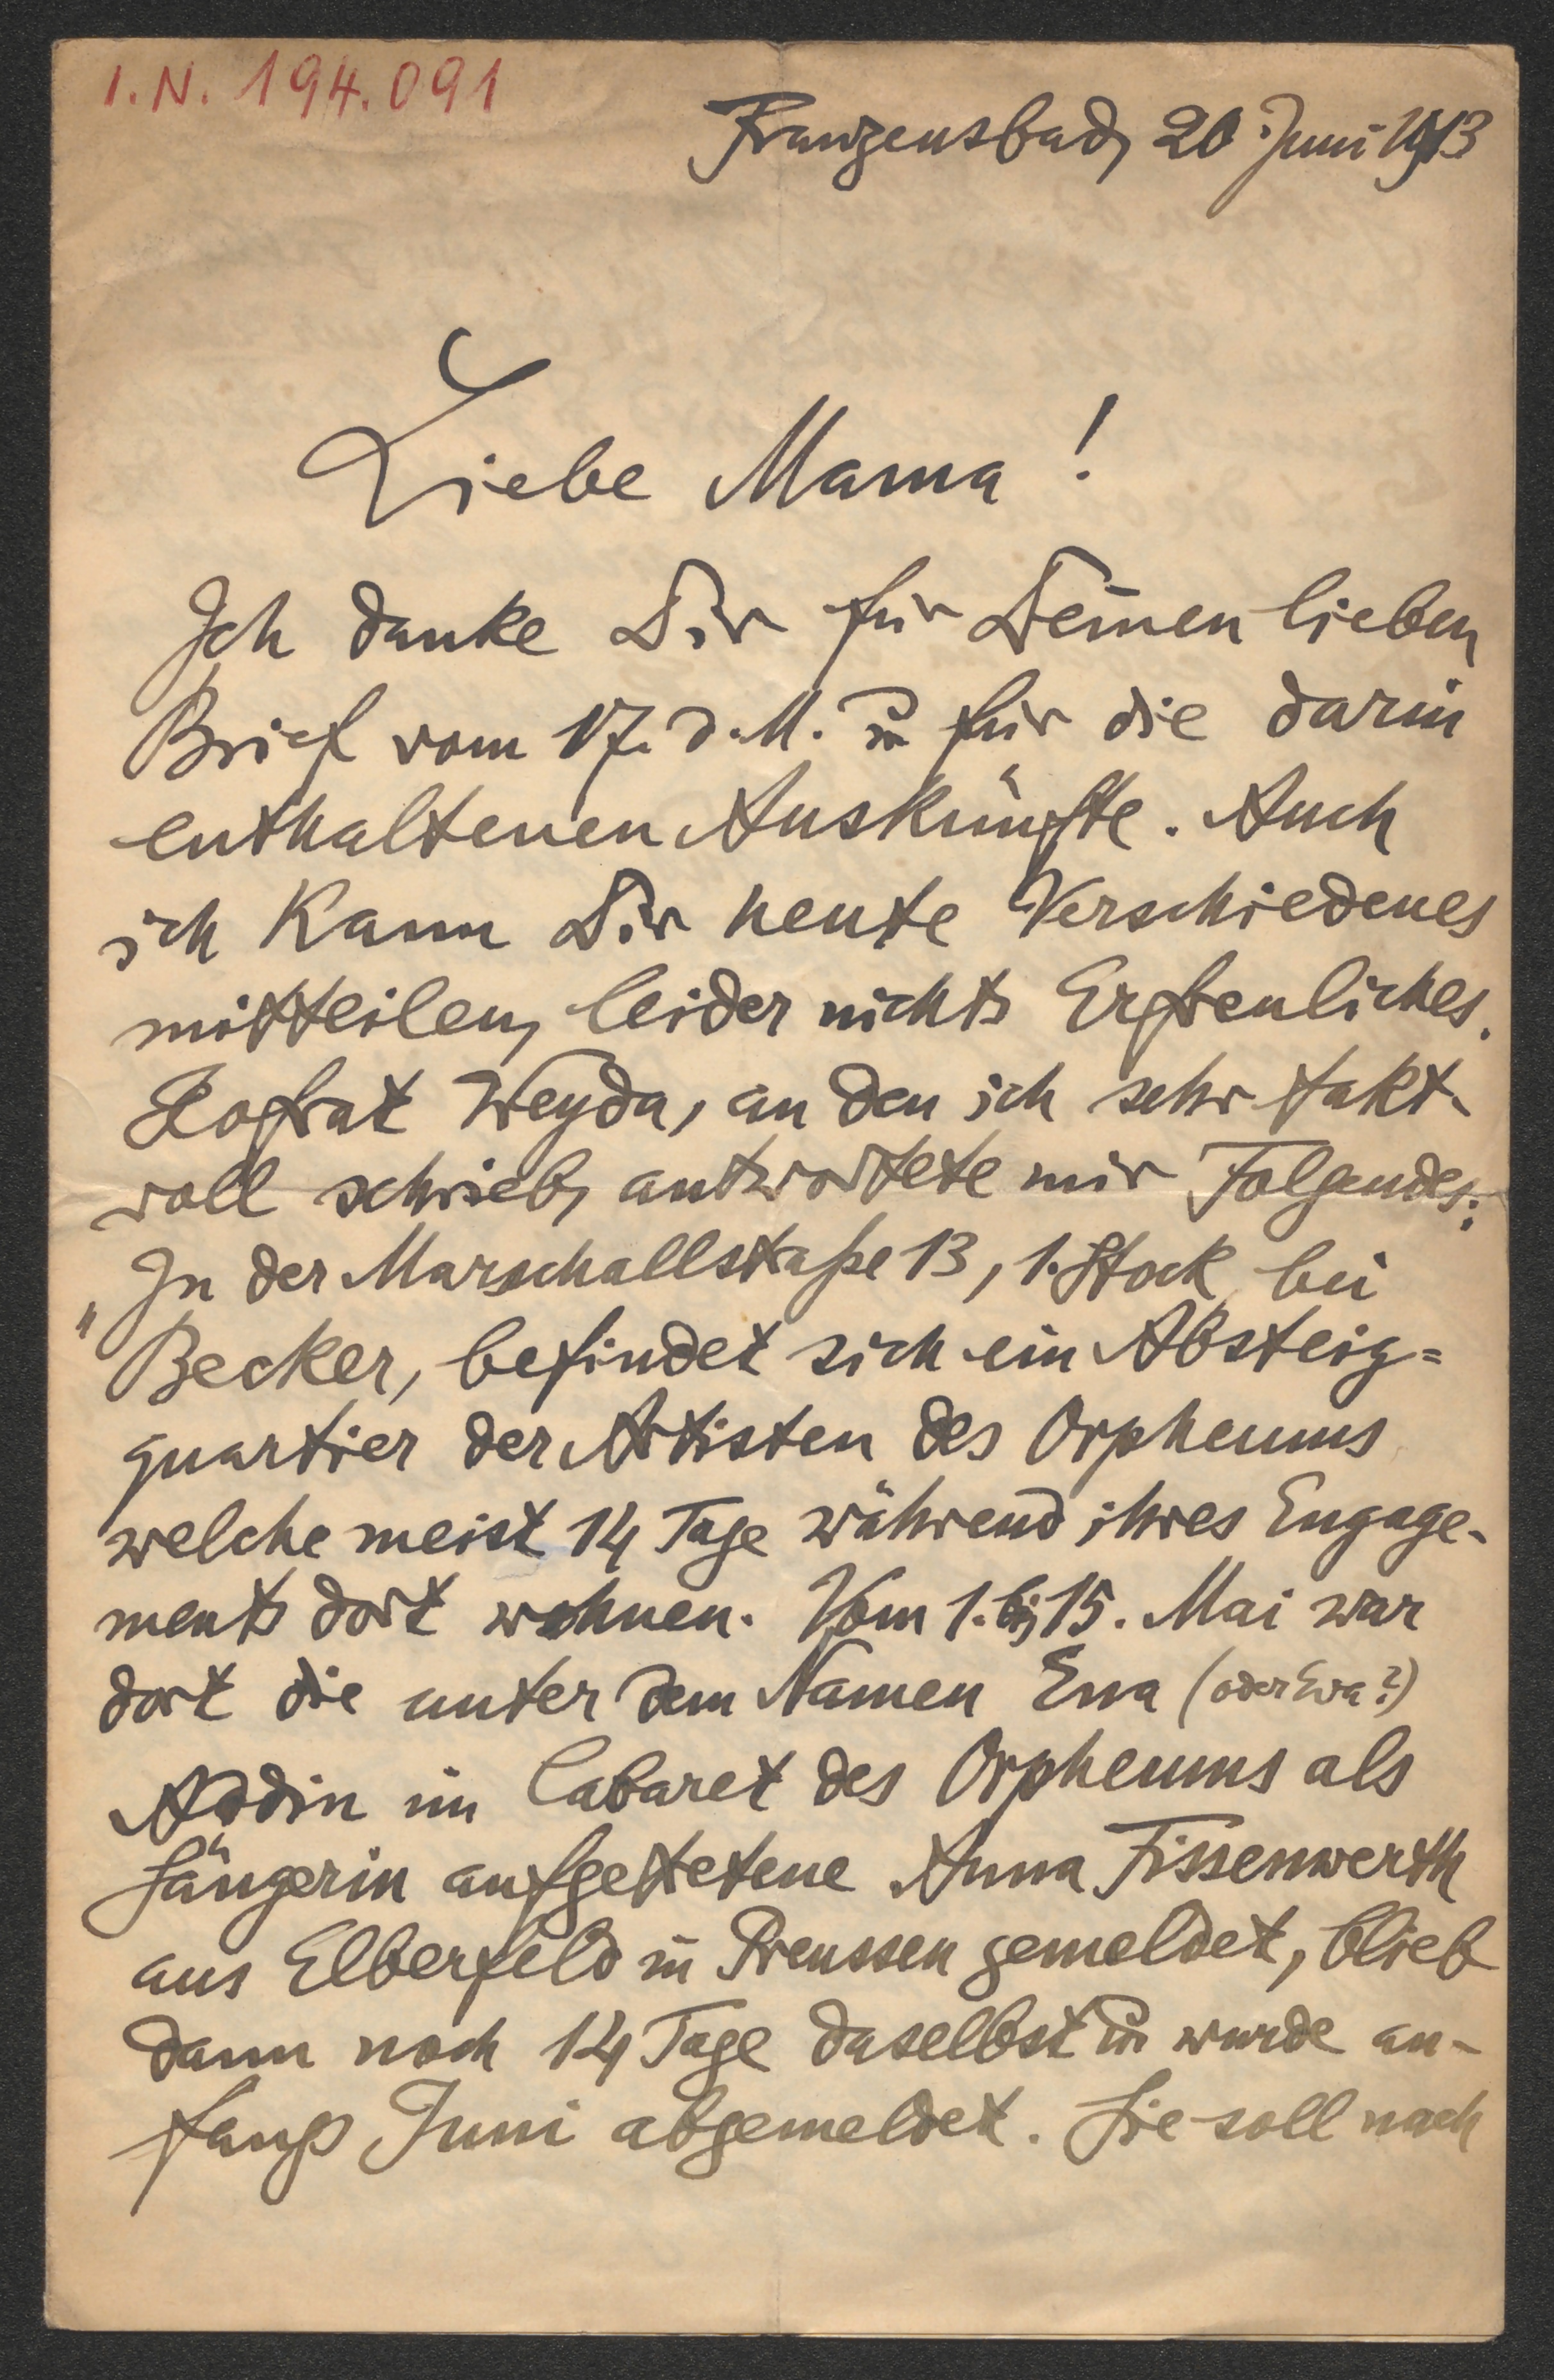 I.N. 194.091
Franzensbad, 20 Juni 1913
Liebe Mama!
Ich danke Dir für Deinen lieben
Brief vom 17. d. M. u für die darin
enthaltenen Auskünfte. Auch
ich kann Dir heute Verschiedenes
mitteilen, leider nichts Erfreuliches.
Hofrat Weyda, an den ich sehr takt-
voll schrieb, antwortete mir Folgendes:
"In der Marschallstraße 13, 1. Stock bei
Becker, befindet sich ein Absteig=
quartier der Artisten des Orpheums
welche meist 14 Tage während ihres Engage-
ments dort wohnen. Vom 1. bis 15. Mai war
dort die unter dem Namen Ena (oder Eva?)
Nodin im Cabaret des Orpheums als
Sängerin aufgetretene Anna Fissenwerth
aus Elberfeld in Preussen gemeldet, blieb
dann noch 14 Tage daselbst u wurde an-
fangs Juni abgemeldet. Sie soll nach